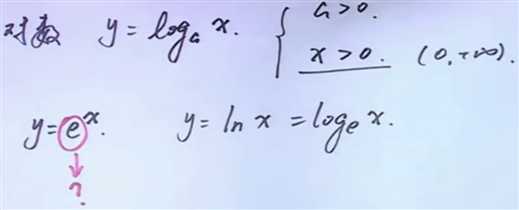 对数 y = logₐ x. { a > 0.
x > 0. (0, +∞).
y = eˣ. y = ln x = logₑ x.
↓
?